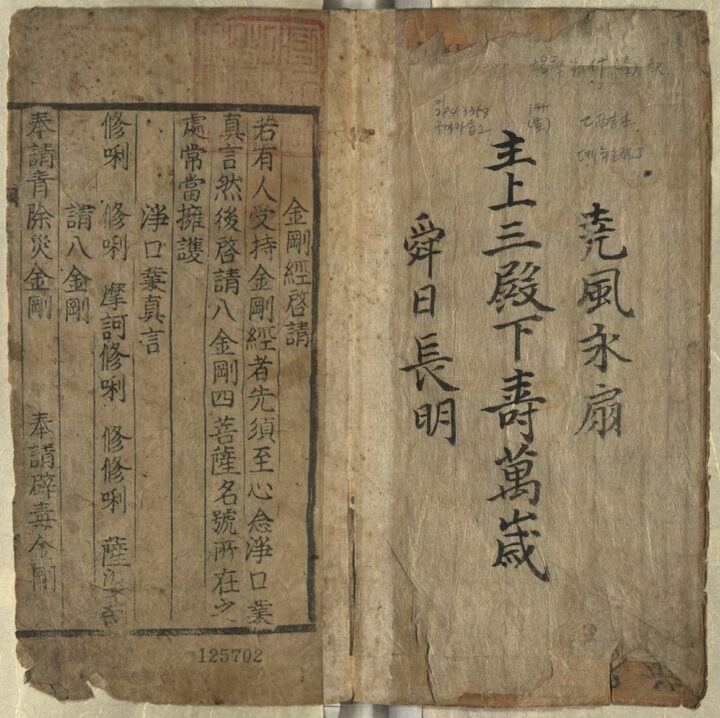 堯風永扇
主上三殿下壽萬歲
舜日長明
金剛經啓請
若有人受持金剛經者先須至心念淨口業
真言然後啓請八金剛四菩薩名號所在之
處常當擁護
淨口業真言
修唎 修唎 摩訶修唎 修修唎 薩
請八金剛
奉請青除災金剛 奉請辟毒金剛
125702